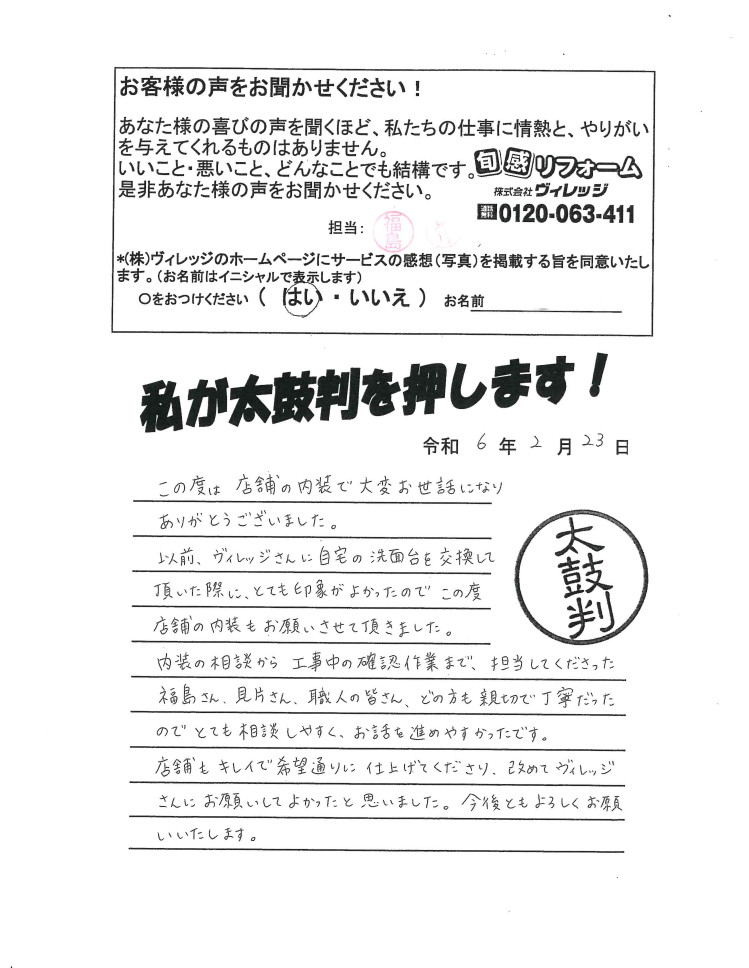 お客様の声をお聞かせください！
あなた様の喜びの声を聞くほど、私たちの仕事に情熱と、やりがい
を与えてくれるものはありません。
いいこと・悪いこと、どんなことでも結構です。
是非あなた様の声をお聞かせください。
旬感リフォーム
株式会社ヴィレッジ
通話無料 0120-063-411
担当：福島
*(株)ヴィレッジのホームページにサービスの感想(写真)を掲載する旨を同意いたし
ます。(お名前はイニシャルで表示します)
○をおつけください ( はい・いいえ ) お名前
私が太鼓判を押します！
令和 6 年 2 月 23 日
この度は 店舗の内装で 大変お世話になり
ありがとうございました。
以前、ヴィレッジさんに自宅の洗面台を交換して
頂いた際に、とても印象がよかったので この度
店舗の内装もお願いさせて頂きました。
太鼓判
内装の相談から 工事中の確認作業まで、担当してくださった
福島さん、見片さん、職人の皆さん、どの方も親切で丁寧だった
ので とても相談しやすく、お話を進めやすかったです。
店舗も キレイで希望通りに仕上げてくださり、改めてヴィレッジ
さんにお願いしてよかったと思いました。今後ともよろしくお願
いいたします。